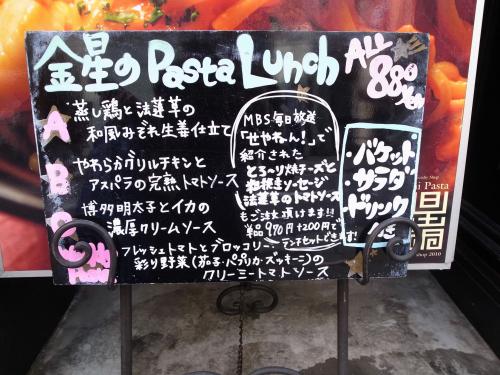 金星のPasta Lunch
ALL
880
Yen
A
蒸し鶏と法蓮草の
和風みぞれ生姜仕立て
B
やわらかグリルチキンと
アスパラの完熟トマトソース
C
博多明太子とイカの
濃厚クリームソース
フレッシュトマトとブロッコリー
彩り野菜(茄子・パプリカ・ズッキーニ)の
クリーミートマトソース
MBS毎日放送
「せやねん!」で
紹介された
とろ〜り焼チーズと
粗挽きソーセージ
法蓮草のトマトソース
もご注文頂けます!!
単品970円+200円で
ランチセットできます!
・バケット
・サラダ
・ドリンク
付
Pasta
2010